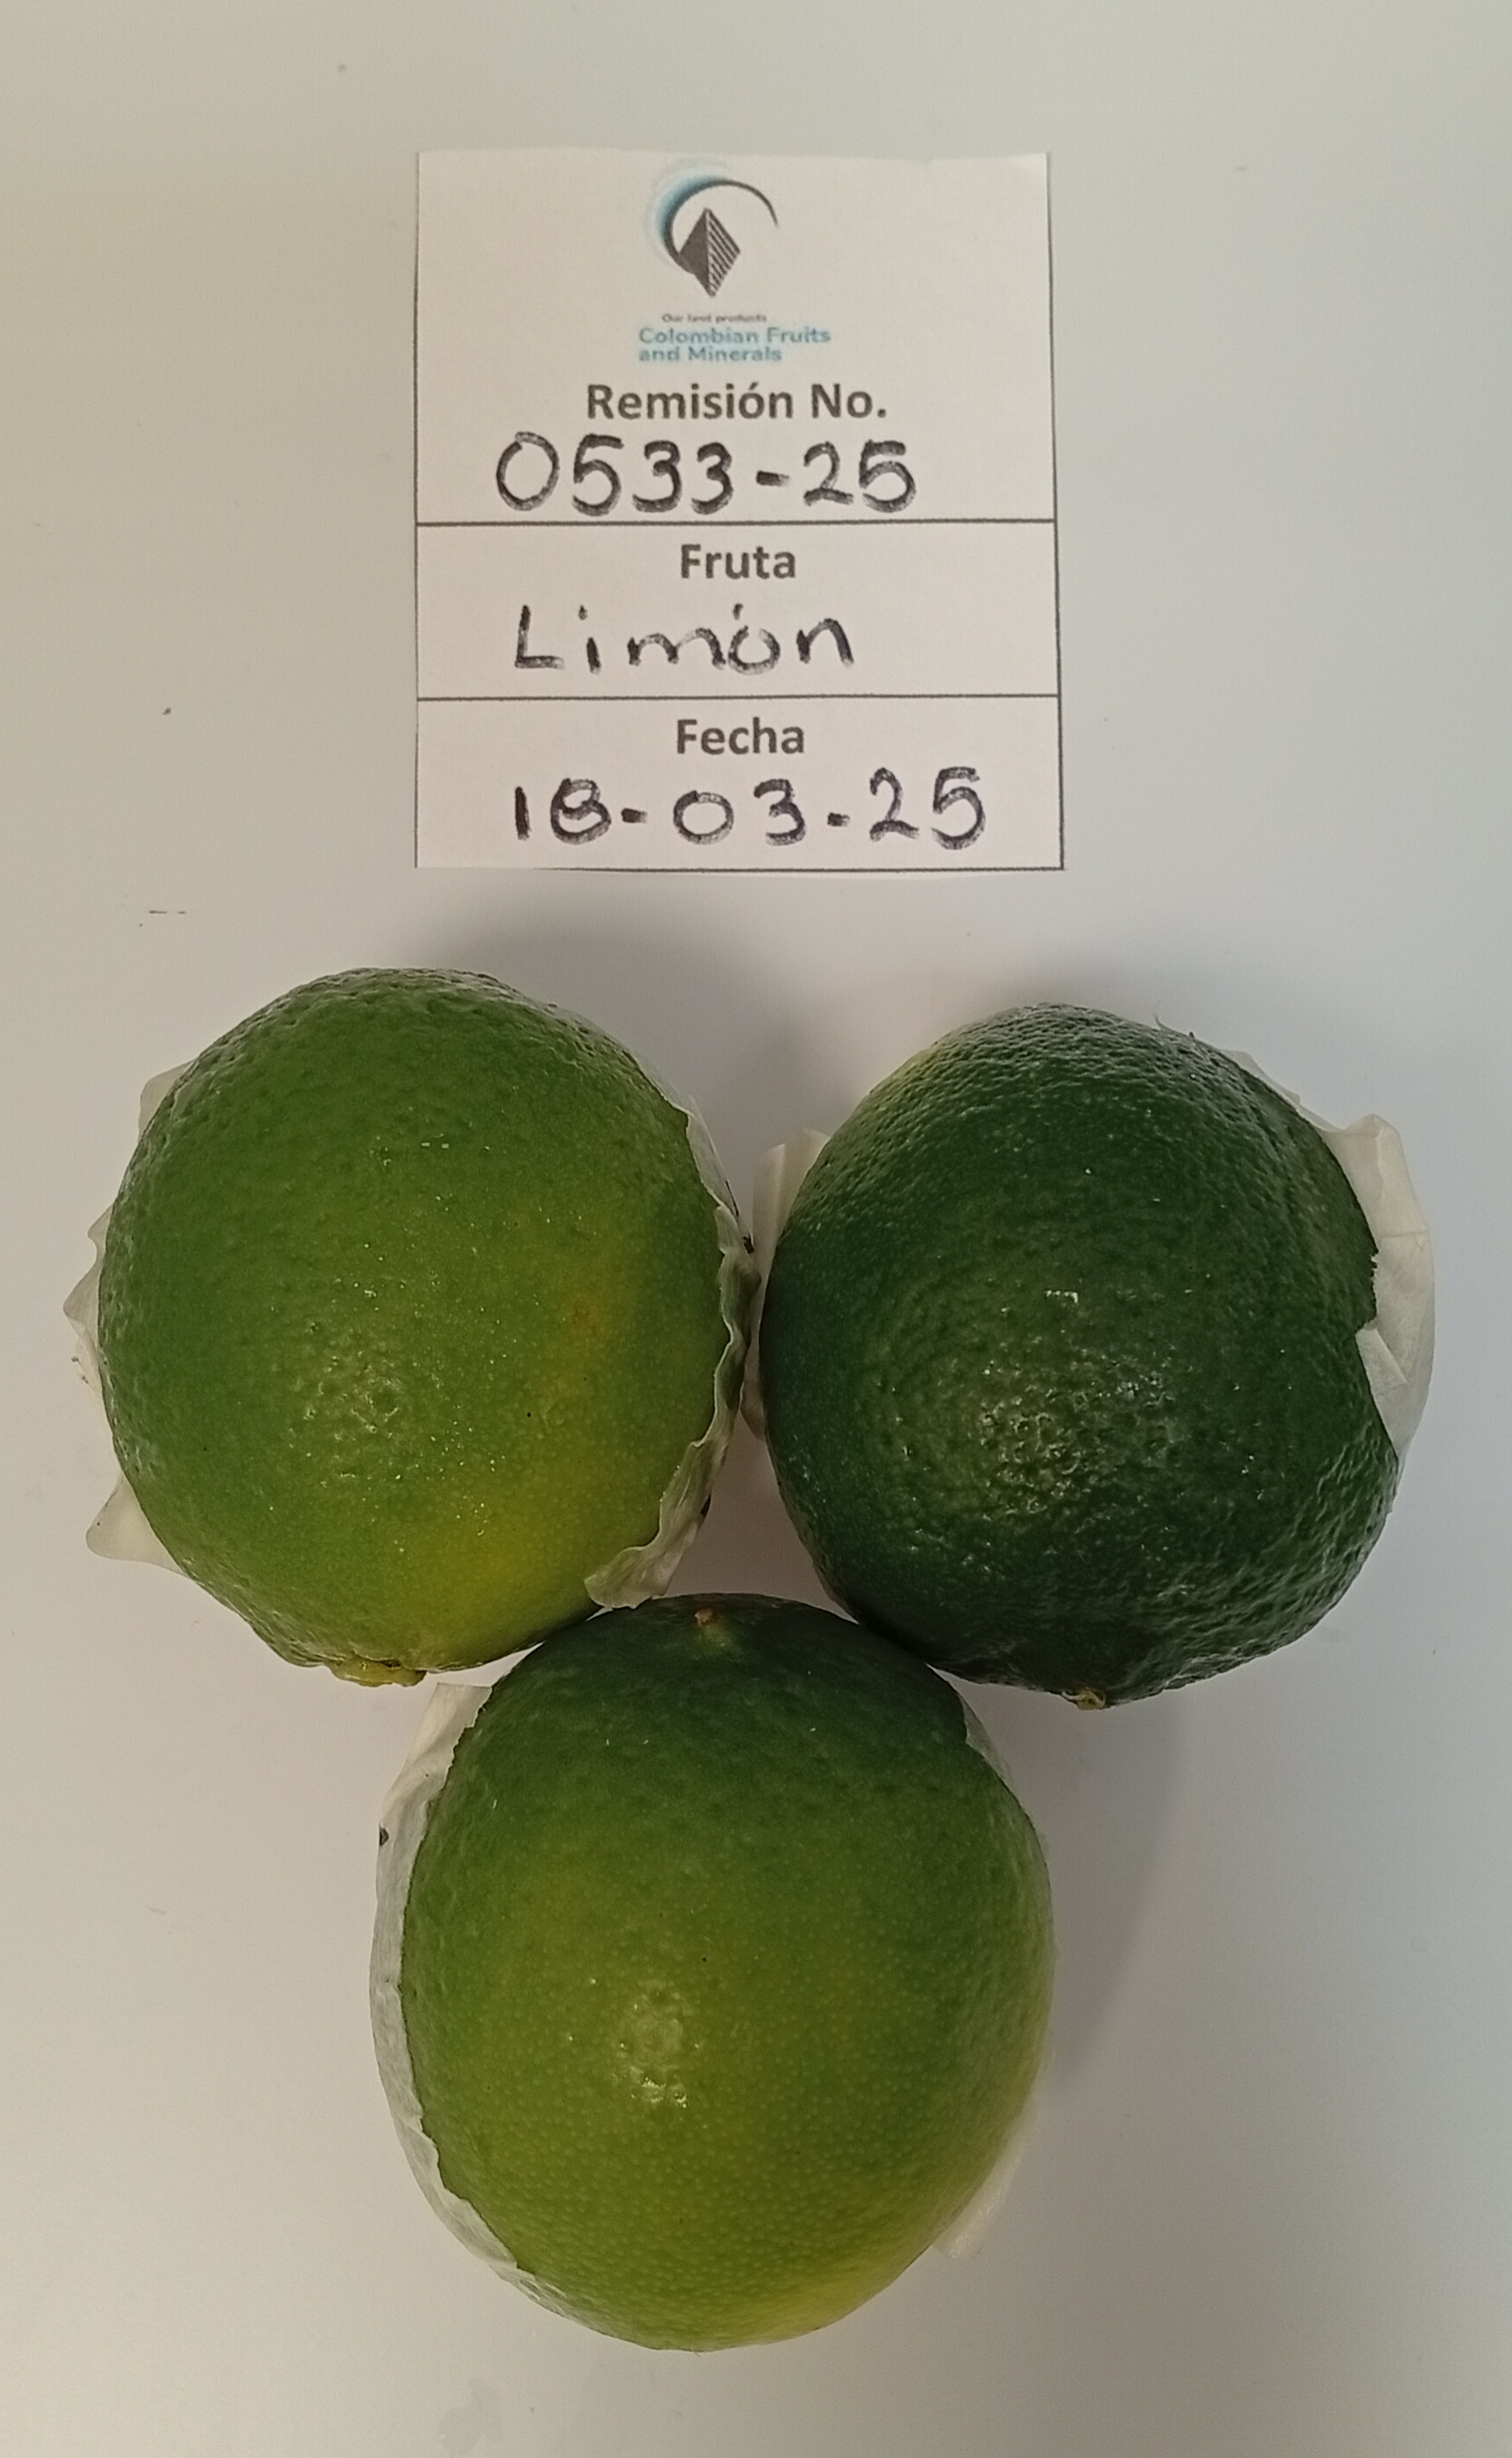 Our land products
Colombian Fruits
and Minerals
Remisión No.
0533-25
Fruta
Limón
Fecha
18-03-25